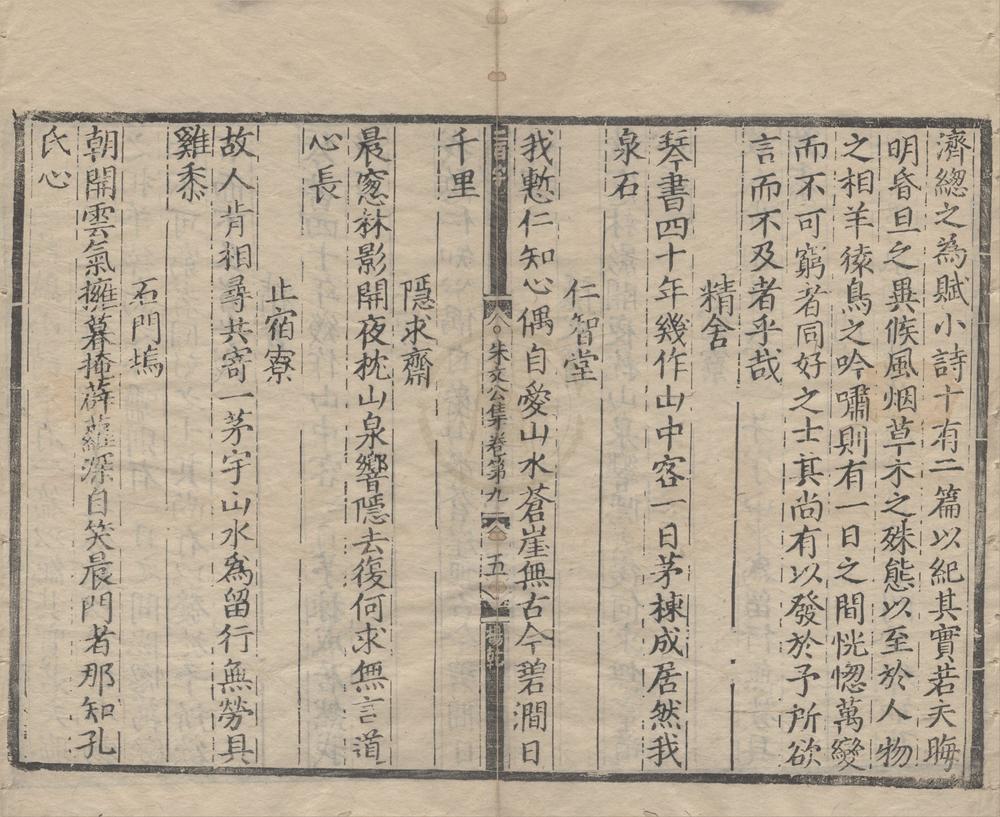 濟總之為賦小詩十有二篇以紀其實若夫晦
明昏旦之異候風烟草木之殊態以至於人物
之相羊猿鳥之吟嘯則有一日之間恍惚萬變
而不可窮者同好之士其尚有以發於予所欲
言而不及者乎哉
精舍
琴書四十年幾作山中客一日茅棟成居然我
泉石
仁智堂
我慙仁知心偶自愛山水蒼崖無古今碧澗日
朱文公集卷第九
五
千里
隱求齋
晨窻林影開夜枕山泉響隱去復何求無言道
心長
止宿寮
故人肯相尋共寄一茅宇山水為留行無勞具
雞黍
石門塢
朝開雲氣擁暮掩薜蘿深自笑晨門者那知孔
氏心